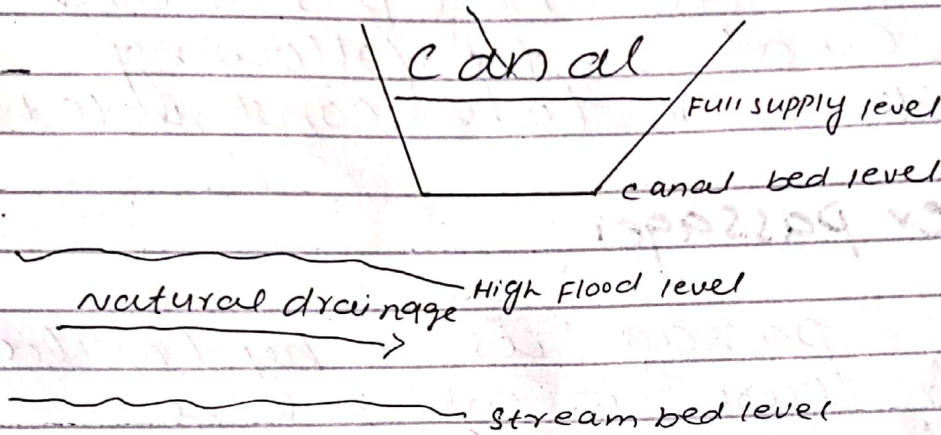 canal
Full supply level
canal bed level
High Flood level
Natural drainage
stream bed level